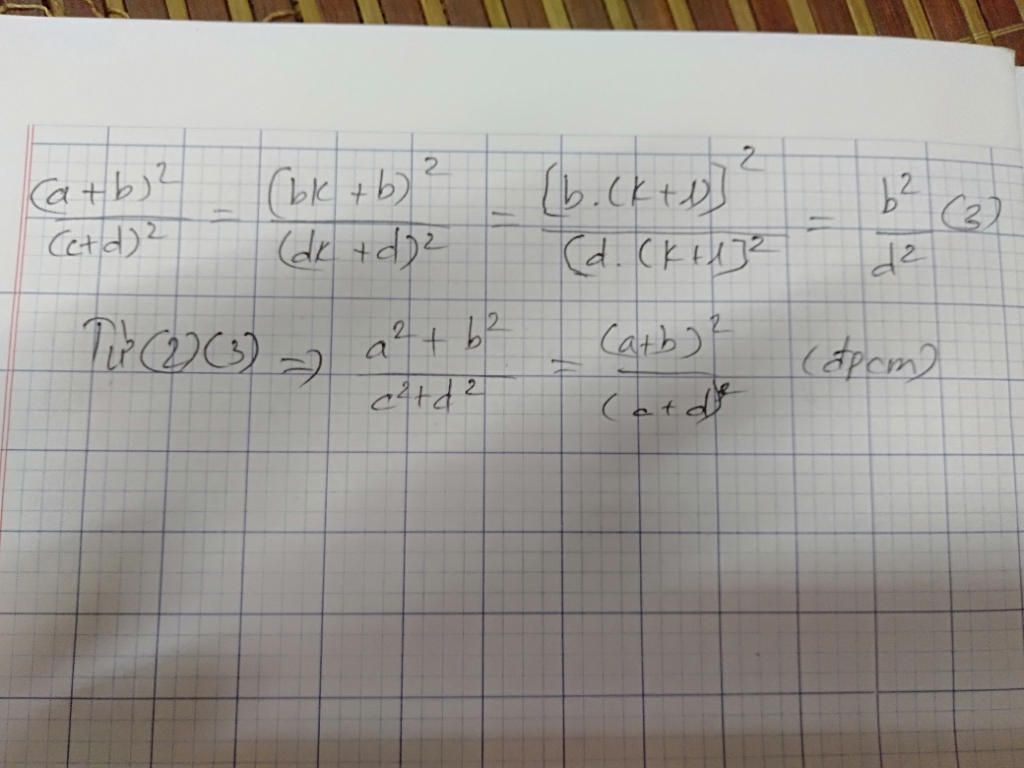 (a+b)²/(c+d)² = (bk+b)²/(dk+d)² = [b.(k+1)]²/(d.(k+1]² = b²/d² (3)
Từ (2)(3) => a²+b²/c²+d² = (a+b)²/(c+d)² (đpcm)